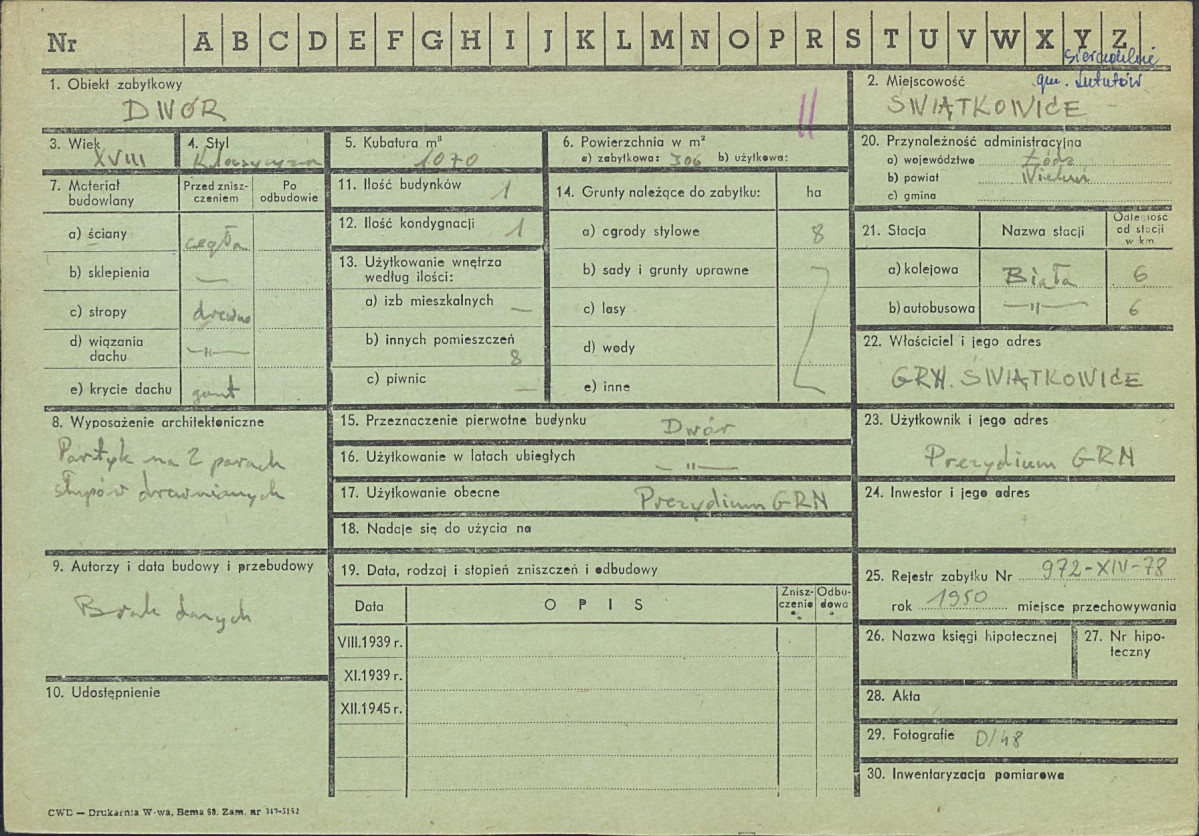 Nr A B C D E F G H I J K L M N O P R S T U V W X Y Z
gm. Lututów
1. Obiekt zabytkowy
DWÓR
II
2. Miejscowość
ŚWIĄTKOWICE
3. Wiek
XVIII
4. Styl
Klasycyzm
5. Kubatura m³
1070
6. Powierzchnia w m²
a) zabytkowa: 306 b) użytkowa:
20. Przynależność administracyjna
a) województwo Łódź
b) powiat Wieluń
c) gmina
7. Materiał budowlany
Przed zniszczeniem
Po odbudowie
a) ściany cegła
b) sklepienia —
c) stropy drewno
d) wiązania dachu —"—
e) krycie dachu gont
11. Ilość budynków 1
12. Ilość kondygnacji 1
13. Użytkowanie wnętrza
według ilości:
a) izb mieszkalnych —
b) innych pomieszczeń
8
c) piwnic —
14. Grunty należące do zabytku: ha
a) ogrody stylowe 8
b) sady i grunty uprawne
c) lasy
d) wody
e) inne
21. Stacja Nazwa stacji Odległość od stacji w km
a) kolejowa Biała 6
b) autobusowa —"— 6
22. Właściciel i jego adres
GRN. ŚWIĄTKOWICE
8. Wyposażenie architektoniczne
Portyk na 2 parach
słupów drewnianych
15. Przeznaczenie pierwotne budynku Dwór
16. Użytkowanie w latach ubiegłych —"—
17. Użytkowanie obecne Prezydium GRN
18. Nadaje się do użycia na
23. Użytkownik i jego adres
Prezydium GRN
24. Inwestor i jego adres
9. Autorzy i data budowy i przebudowy
Brak danych
10. Udostępnienie
19. Data, rodzaj i stopień zniszczeń i odbudowy
Data O P I S Zniszczenie % Odbudowa %
VIII.1939 r.
XI.1939 r.
XII.1945 r.
25. Rejestr zabytku Nr 972-XIV-78
rok 1950 miejsce przechowywania
26. Nazwa księgi hipotecznej
27. Nr hipoteczny
28. Akta
29. Fotografie D/48
30. Inwentaryzacja pomiarowa
CWD — Drukarnia W-wa, Bema 60. Zam. nr